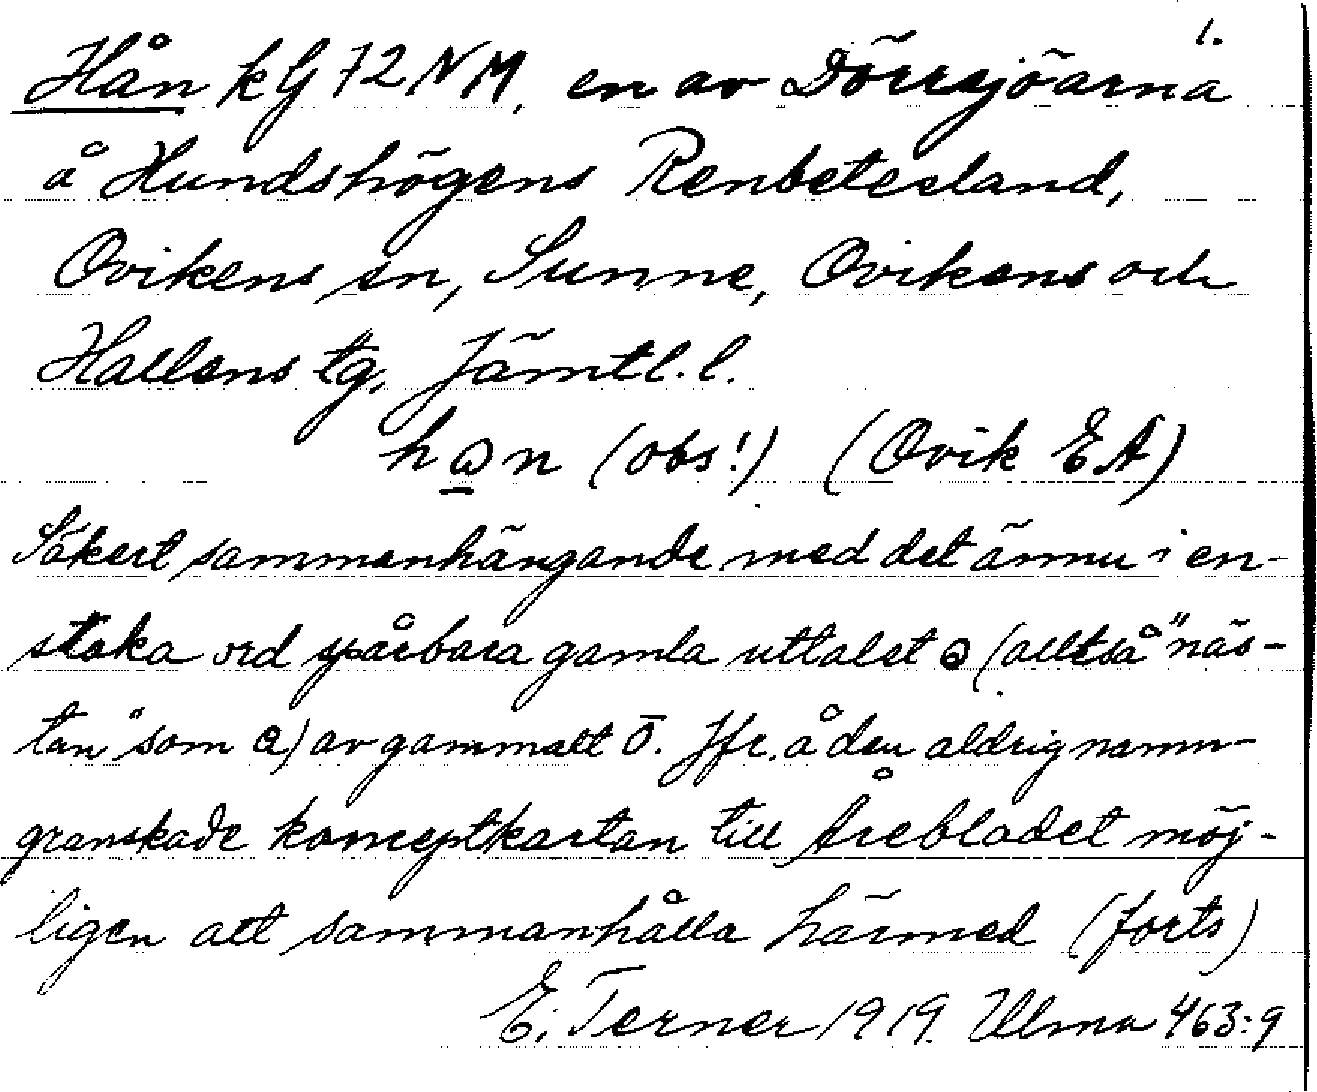 1.
Hån kG 72 NM. en av Dörrsjöarna
å Hundshögens Renbetesland,
Ovikens sn, Sunne, Ovikens och
Hallens tg, Jämtl. l.
(obs!) (Ovik EA)
Säkert sammanhängande med det ännu i en-
staka ord spårbara gamla uttalet (alltså "näs-
tan" som a) av gammalt ō. Jfr. å den aldrig namn-
granskade konceptkartan till Årebladet möj-
ligen att sammanhålla härmed (forts)
E. Terner 1919. Ulma 463:9